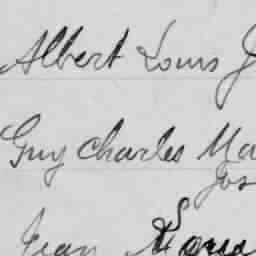 Albert Louis J
Guy Charles Ma
Jos
Jean